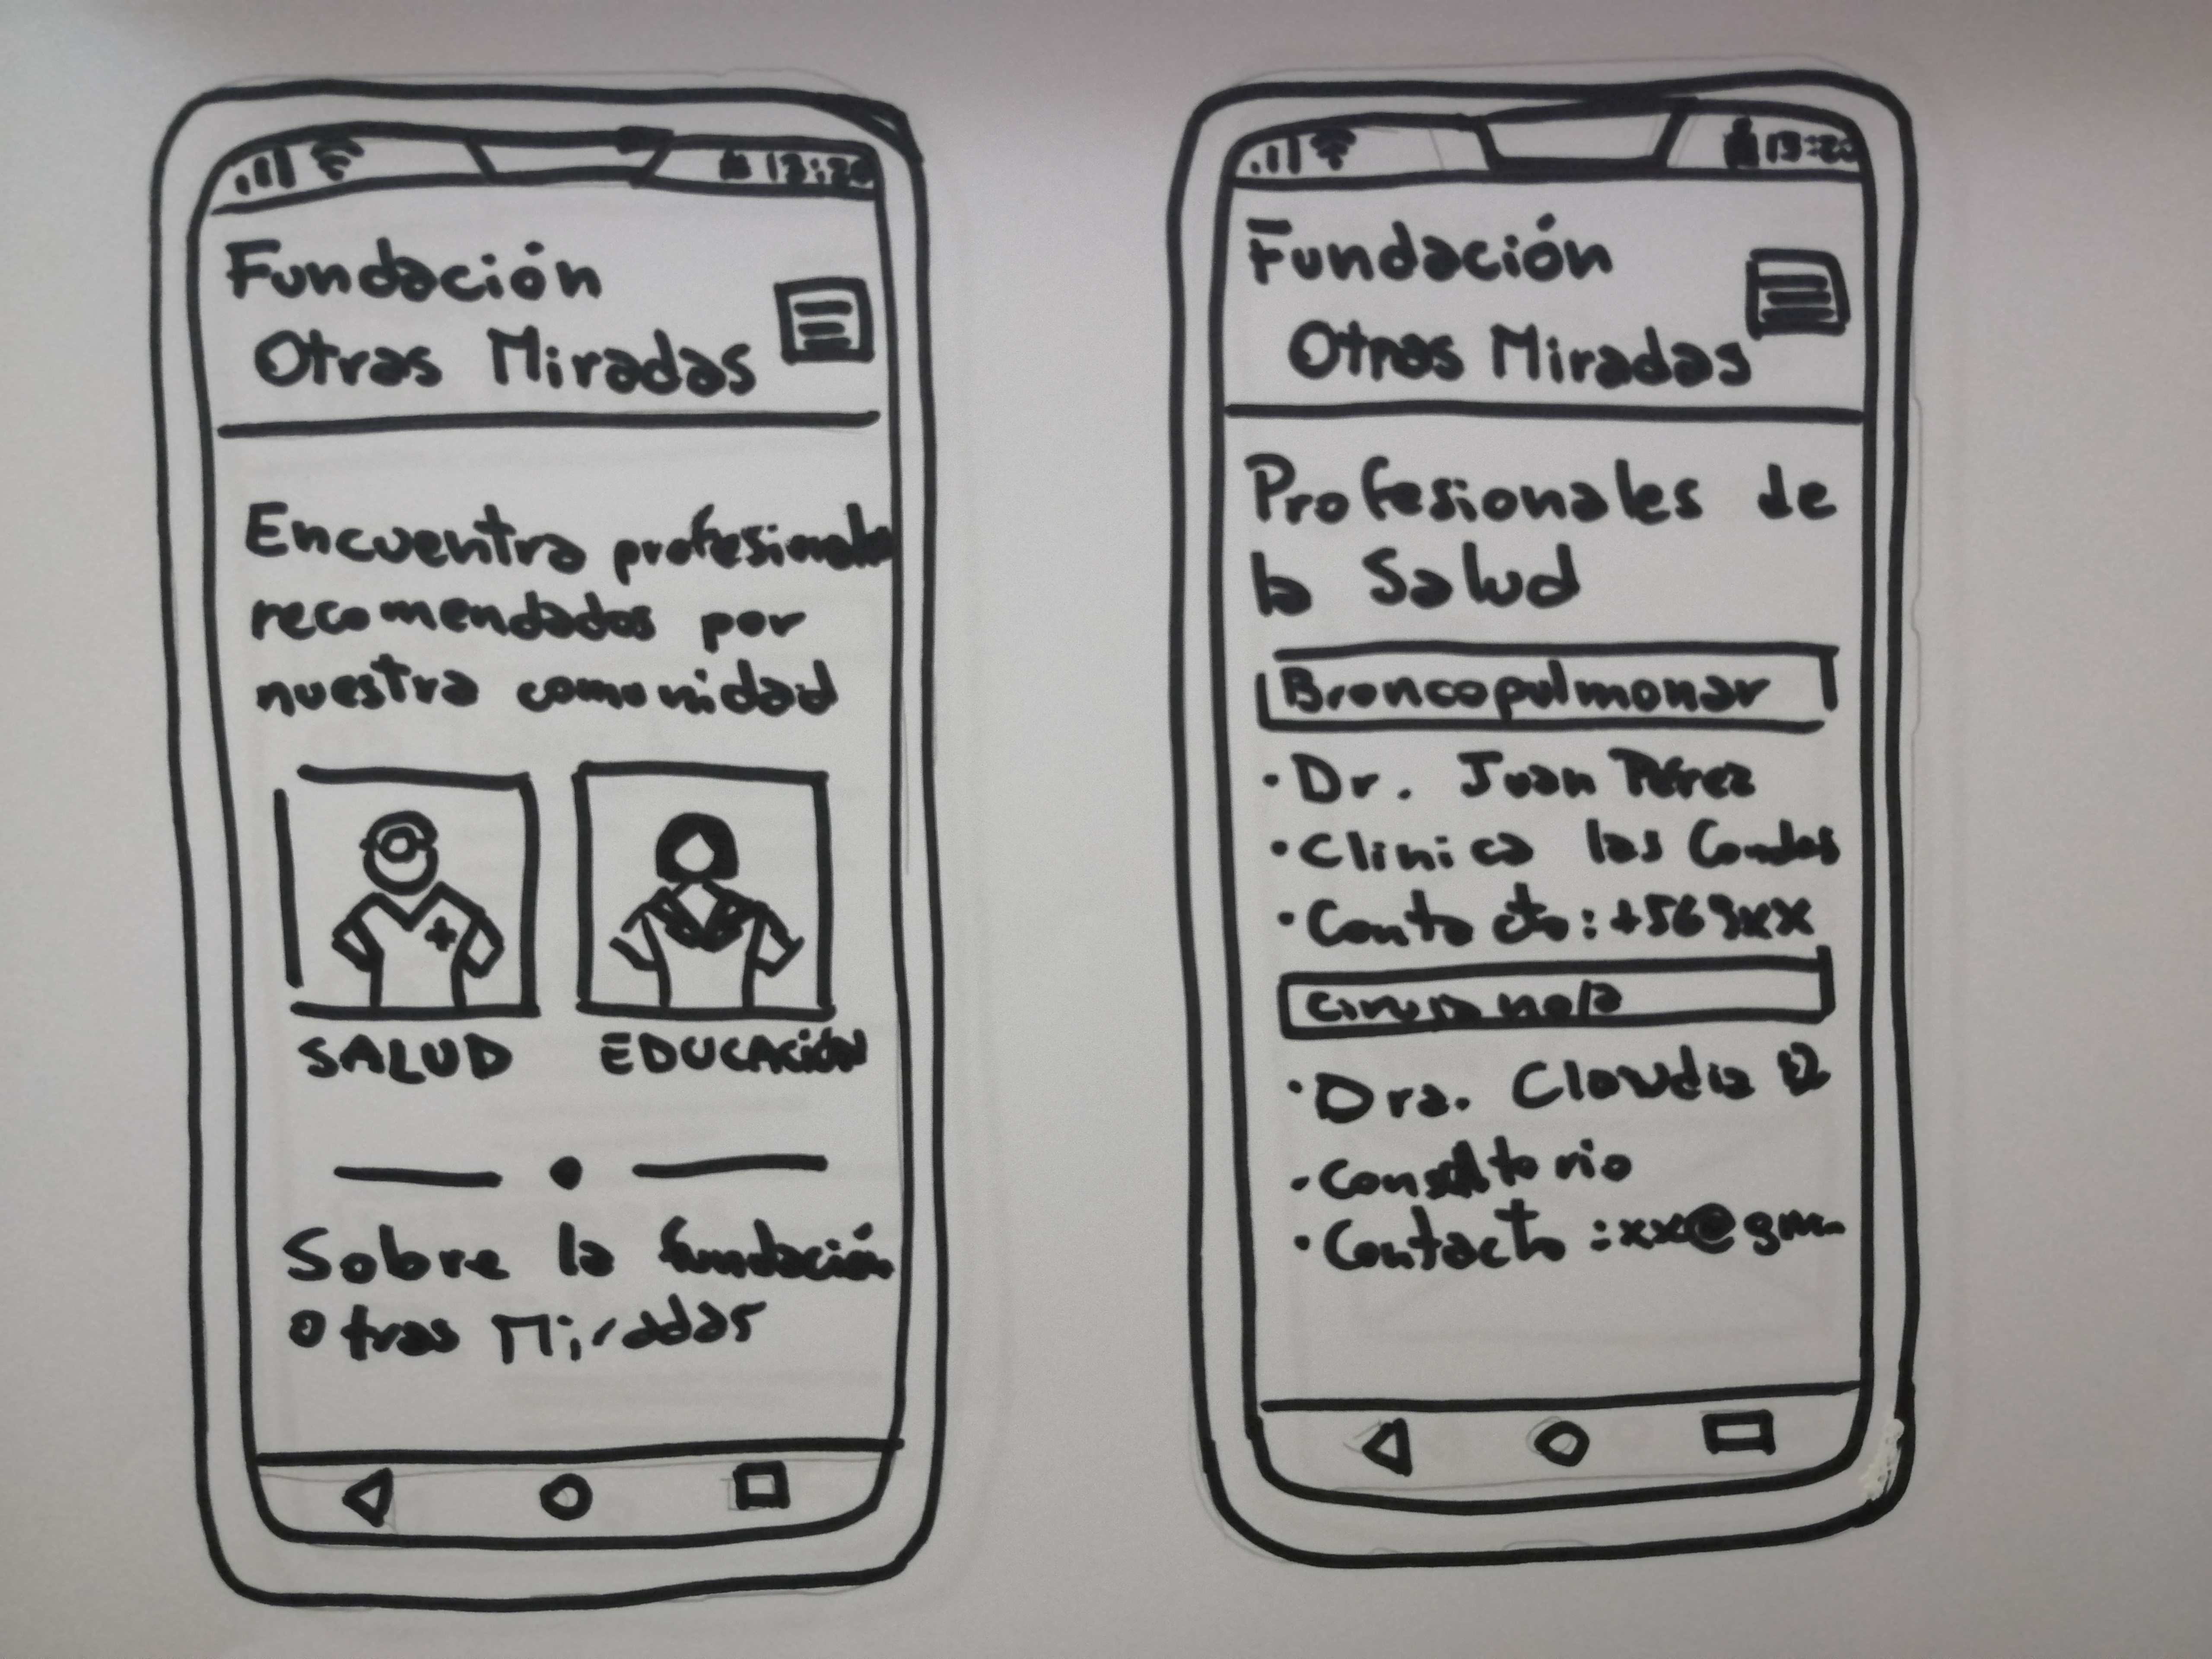 13:20
Fundación
Otras Miradas
Encuentra profesionales
recomendados por
nuestra comunidad
SALUD EDUCACIÓN
Sobre la fundación
Otras Miradas
13:20
Fundación
Otras Miradas
Profesionales de
la Salud
Broncopulmonar
· Dr. Juan Pérez
· Clinica las Condes
· Contacto: +569xx
· Dra. Claudia
· Consultorio
· Contacto: xx@gm